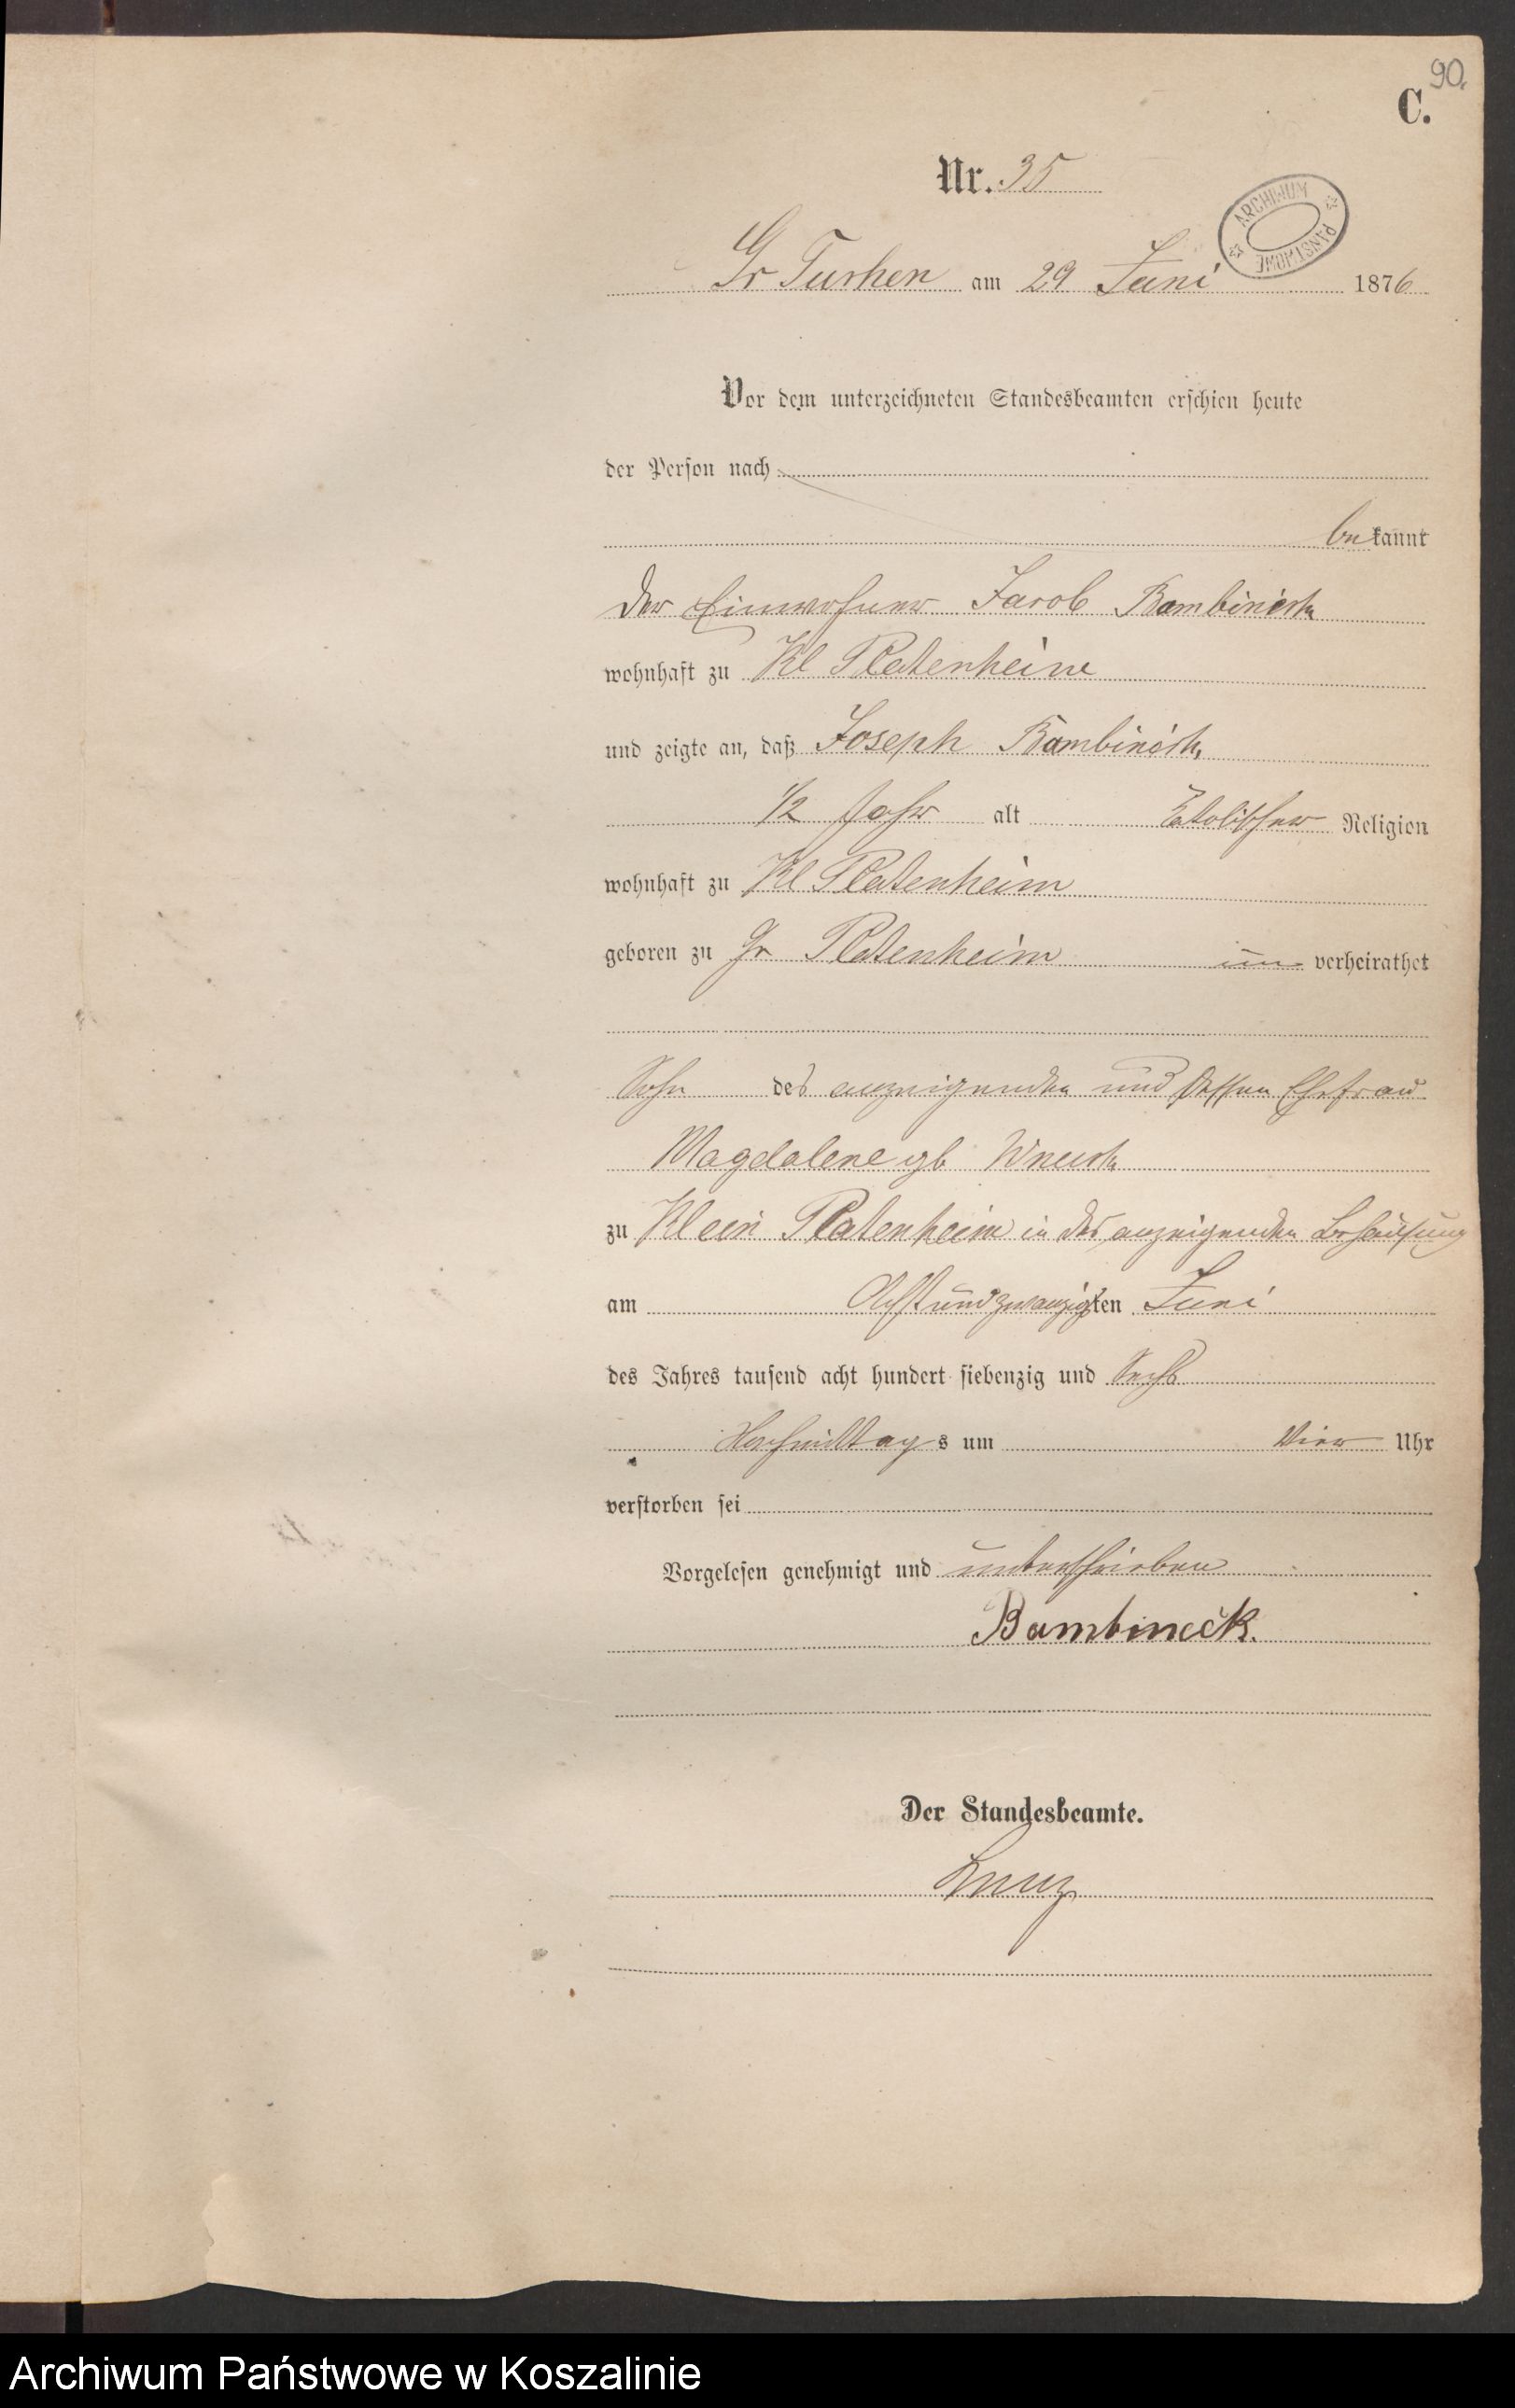 90.
C.
Nr. 35
ARCHIWUM PAŃSTWOWE
Gr Tuchen am 29 Juni 1876
Vor dem unterzeichneten Standesbeamten erschien heute
der Person nach
bekannt
der Einwohner Jacob Bambineck
wohnhaft zu Kl Platenheim
und zeigte an, daß Joseph Bambineck,
1/2 Jahr alt Katolischer Religion
wohnhaft zu Kl Platenheim
geboren zu Gr Platenheim un verheirathet
Sohn des anzeigenden und dessen Ehefrau
Magdalene gb
zu Klein Platenheim in des anzeigenden Behausung
am Achtundzwanzigten Juni
des Jahres tausend acht hundert siebenzig und Sechs
Nachmittags um Vier Uhr
verstorben sei
Vorgelesen genehmigt und unterschrieben
Bambineck.
Der Standesbeamte.
Archiwum Państwowe w Koszalinie